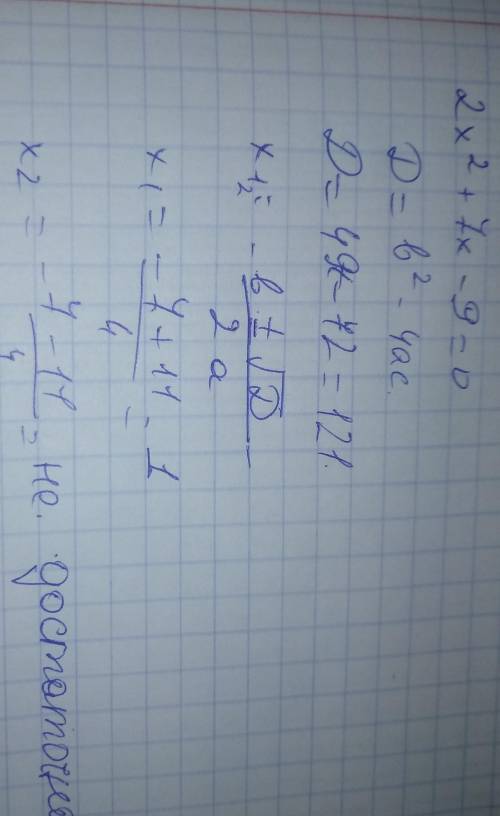 2x² + 7x - 9 = 0
D = b² - 4ac.
D = 49 - 72 = 121.
x₁,₂ = -b ± √D / 2a
x₁ = -7 + 11 / 4 = 1
x₂ = -7 - 11 / 4 = не. достаточно